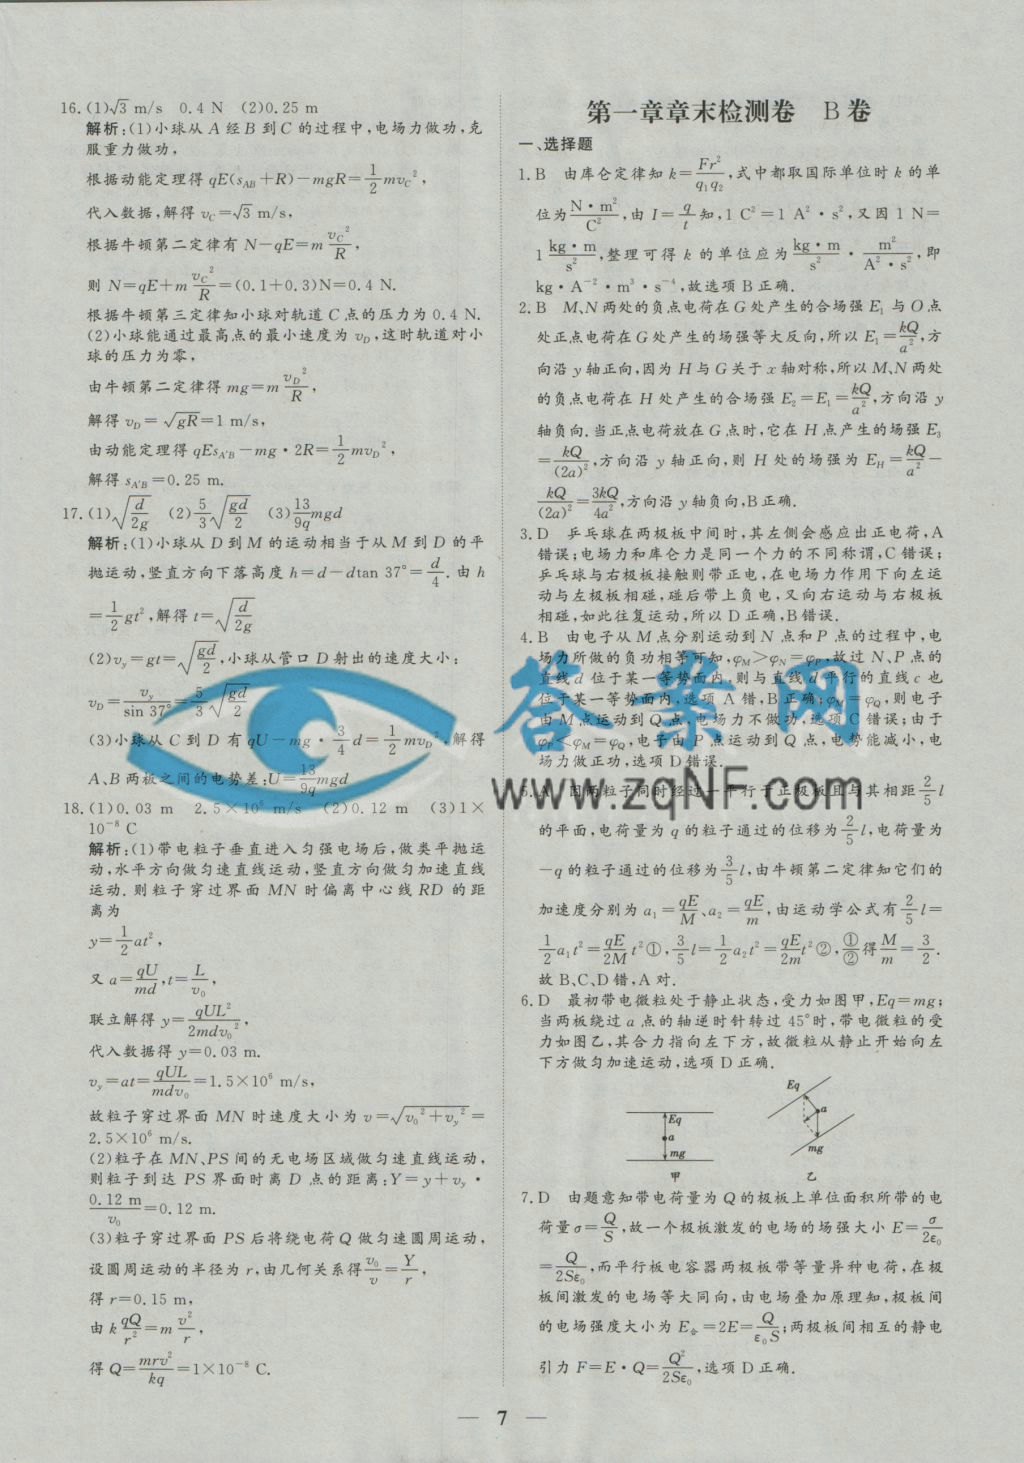 16.(1)√3 m/s 0.4 N (2)0.25 m
解析:(1)小球从 A 经 B 到 C 的过程中,电场力做功,克
服重力做功,
根据动能定理得 qE(s_AB+R)-mgR=1/2 mv_C²,
代入数据,解得 v_C=√3 m/s,
根据牛顿第二定律有 N-qE=m v_C²/R,
则 N=qE+m v_C²/R=(0.1+0.3)N=0.4 N.
根据牛顿第三定律知小球对轨道 C 点的压力为 0.4 N.
(2)小球能通过最高点的最小速度为 v_D,这时轨道对小
球的压力为零,
由牛顿第二定律得 mg=m v_D²/R,
解得 v_D=√gR=1 m/s,
由动能定理得 qEs_A′B-mg·2R=1/2 mv_D²,
解得 s_A′B=0.25 m.
17.(1)√(d/2g) (2)5/3 √(gd/2) (3)13/9q mgd
解析:(1)小球从 D 到 M 的运动相当于从 M 到 D 的平
抛运动,竖直方向下落高度 h=d-dtan 37°=d/4.由 h
=1/2 gt²,解得 t=√(d/2g)
(2)v_y=gt=√(gd/2),小球从管口 D 射出的速度大小:
v_D=v_y/sin 37°=5/3 √(gd/2)
(3)小球从 C 到 D 有 qU-mg·3/4 d=1/2 mv_D²,解得
A、B 两板之间的电势差:U=13/9q mgd
18.(1)0.03 m 2.5×10⁶ m/s (2)0.12 m (3)1×
10⁻⁸ C
解析:(1)带电粒子垂直进入匀强电场后,做类平抛运
动,水平方向做匀速直线运动,竖直方向做匀加速直线
运动.则粒子穿过界面 MN 时偏离中心线 RD 的距
离为
y=1/2 at²,
又 a=qU/md,t=L/v₀,
联立解得 y=qUL²/2mdv₀²,
代入数据得 y=0.03 m.
v_y=at=qUL/mdv₀=1.5×10⁶ m/s,
故粒子穿过界面 MN 时速度大小为 v=√(v₀²+v_y²)=
2.5×10⁶ m/s.
(2)粒子在 MN、PS 间的无电场区域做匀速直线运动,
则粒子到达 PS 界面时离 D 点的距离:Y=y+v_y·
0.12 m/v₀=0.12 m.
(3)粒子穿过界面 PS 后将绕电荷 Q 做匀速圆周运动,
设圆周运动的半径为 r,由几何关系得 v₀/v=Y/r,
得 r=0.15 m,
由 k qQ/r²=m v²/r,
得 Q=mrv²/kq=1×10⁻⁸ C.
第一章章末检测卷 B 卷
一、选择题
1.B 由库仑定律知 k=Fr²/q₁q₂,式中都取国际单位时 k 的单
位为 N·m²/C²,由 I=q/t 知,1 C²=1 A²·s²,又因 1 N=
1 kg·m/s²,整理可得 k 的单位应为 kg·m/s²·m²/A²·s²,即
kg·A⁻²·m³·s⁻⁴,故选项 B 正确.
2.B M、N 两处的负点电荷在 G 处产生的合场强 E₁ 与 O 点
处正点电荷在 G 处产生的场强等大反向,所以 E₁=kQ/a²,方
向沿 y 轴正向,因为 H 与 G 关于 x 轴对称,所以 M、N 两处
的负点电荷在 H 处产生的合场强 E₂=E₁=kQ/a²,方向沿 y
轴负向.当正点电荷放在 G 点时,它在 H 点产生的场强 E₃
=kQ/(2a)²,方向沿 y 轴正向,则 H 处的场强为 E_H=kQ/a²-
kQ/(2a)²=3kQ/4a²,方向沿 y 轴负向,B 正确.
3.D 乒乓球在两极板中间时,其左侧会感应出正电荷,A
错误;电场力和库仑力是同一个力的不同称谓,C 错误;
乒乓球与右极板接触则带正电,在电场力作用下向左运
动与左极板相碰,碰后带上负电,又向右运动与右极板
相碰,如此往复运动,所以 D 正确,B 错误.
4.B 由电子从 M 点分别运动到 N 点和 P 点的过程中,电
场力所做的负功相等可知,φ_M>φ_N=φ_P,故过 N、P 点的
直线 d 位于某一等势面内,则与直线 d 平行的直线 c 也
位于某一等势面内,选项 A 错,B 正确;φ_M=φ_Q,则电子
由 M 点运动到 Q 点,电场力不做功,选项 C 错误;由于
φ_P<φ_M=φ_Q,电子由 P 点运动到 Q 点,电势能减小,电
场力做正功,选项 D 错误.
5.A 因两粒子同时经过一平行于正极板且与其相距 2/5 l
的平面,电荷量为 q 的粒子通过的位移为 2/5 l,电荷量为
-q 的粒子通过的位移为 3/5 l,由牛顿第二定律知它们的
加速度分别为 a₁=qE/M、a₂=qE/m,由运动学公式有 2/5 l=
1/2 a₁t²=qE/2M t²①,3/5 l=1/2 a₂t²=qE/2m t²②,①/②得 M/m=3/2.
故 B、C、D 错,A 对.
6.D 最初带电微粒处于静止状态,受力如图甲,Eq=mg;
当两板绕过 a 点的轴逆时针转过 45°时,带电微粒的受
力如图乙,其合力指向左下方,故微粒从静止开始向左
下方做匀加速运动,选项 D 正确.
Eq
a
mg
甲
Eq
a
mg
乙
7.D 由题意知带电荷量为 Q 的极板上单位面积所带的电
荷量 σ=Q/S,故一个极板激发的电场的场强大小 E=σ/2ε₀
=Q/2Sε₀,而平行板电容器两极板带等量异种电荷,在极
板间激发的电场等大同向,由电场叠加原理知,极板间
的电场强度大小为 E合=2E=Q/ε₀S;两极板间相互的静电
引力 F=E·Q=Q²/2Sε₀,选项 D 正确.
— 7 —
答案网
www.zqNF.com